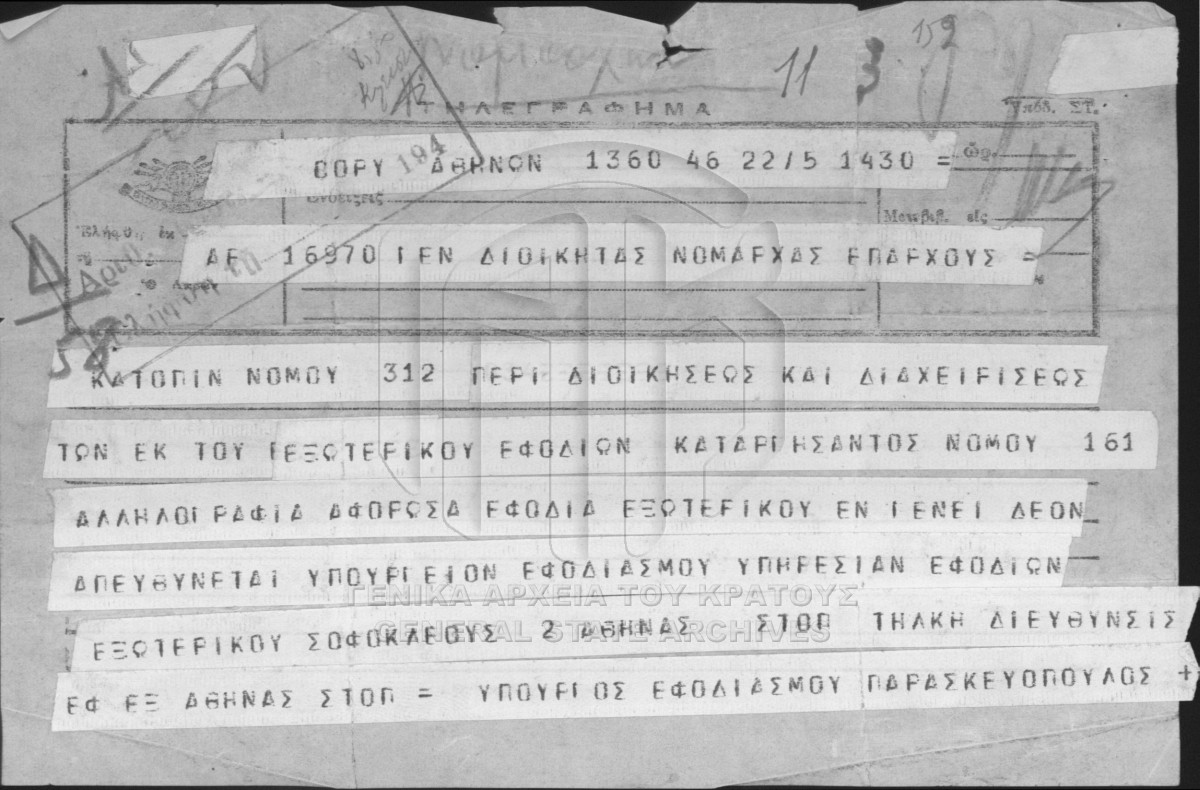 11 3 159
ΤΗΛΕΓΡΑΦΗΜΑ
Υπόδ. ΣΤ.
ΘΟΡΥ ΑΘΗΝΩΝ 1360 46 22/5 1430 =
194
Ὥρ.
Ἐνδείξεις
Μετεβιβ. εἰς
Ἐλήφθη ἐκ
ΑΕ 16970 ΓΕΝ ΔΙΟΙΚΗΤΑΣ ΝΟΜΑΡΧΑΣ ΕΠΑΡΧΟΥΣ =
58
ΚΑΤΟΠΙΝ ΝΟΜΟΥ 312 ΠΕΡΙ ΔΙΟΙΚΗΣΕΩΣ ΚΑΙ ΔΙΑΧΕΙΡΙΣΕΩΣ
ΤΩΝ ΕΚ ΤΟΥ ΕΞΩΤΕΡΙΚΟΥ ΕΦΟΔΙΩΝ ΚΑΤΑΡΓΗΣΑΝΤΟΣ ΝΟΜΟΥ 161
ΑΛΛΗΛΟΓΡΑΦΙΑ ΑΦΟΡΩΣΑ ΕΦΟΔΙΑ ΕΞΩΤΕΡΙΚΟΥ ΕΝ ΓΕΝΕΙ ΔΕΟΝ
ΑΠΕΥΘΥΝΕΤΑΙ ΥΠΟΥΡΓΕΙΟΝ ΕΦΟΔΙΑΣΜΟΥ ΥΠΗΡΕΣΙΑΝ ΕΦΟΔΙΩΝ
ΓΕΝΙΚΑ ΑΡΧΕΙΑ ΤΟΥ ΚΡΑΤΟΥΣ
ΕΞΩΤΕΡΙΚΟΥ ΣΟΦΟΚΛΕΟΥΣ 2 ΑΘΗΝΑΣ ΣΤΟΠ ΤΗΛΚΗ ΔΙΕΥΘΥΝΣΙΣ
GENERAL STATE ARCHIVES
ΕΦ ΕΞ ΑΘΗΝΑΣ ΣΤΟΠ = ΥΠΟΥΡΓΟΣ ΕΦΟΔΙΑΣΜΟΥ ΠΑΡΑΣΚΕΥΟΠΟΥΛΟΣ +